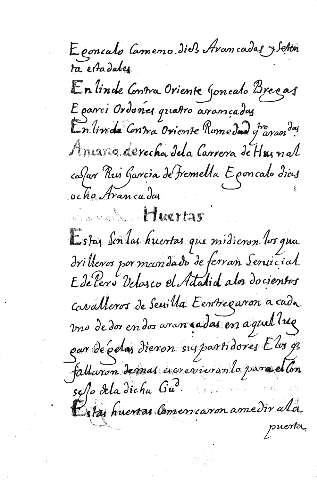 Egoncalo Cameno. diez Arancadas y Seten
ta estadales
En linde Contra Oriente Goncalo Bregas
E parci Ordoñes quatro arancadas
En linde Contra Oriente
A mano derecha dela Carrera de Huznal
cacar Rui Garcia de Tremella Egoncalo dias
ocho Arancadas
Huertas
Estas Son las huertas que midieron los qua
drilleros por mandado de ferran Seruicial
E de Pero Velasco el Adalid a los docientos
cavalleros de Seuilla E entregaron a cada
vno de dos en dos arancadas en aquel lug
gar de gelas dieron sus partidores E los q̃
fallaron demas escreuieron lo para el Con
sejo dela dicha Ciu.d
Estas huertas Comencaron a medir a la
puerta